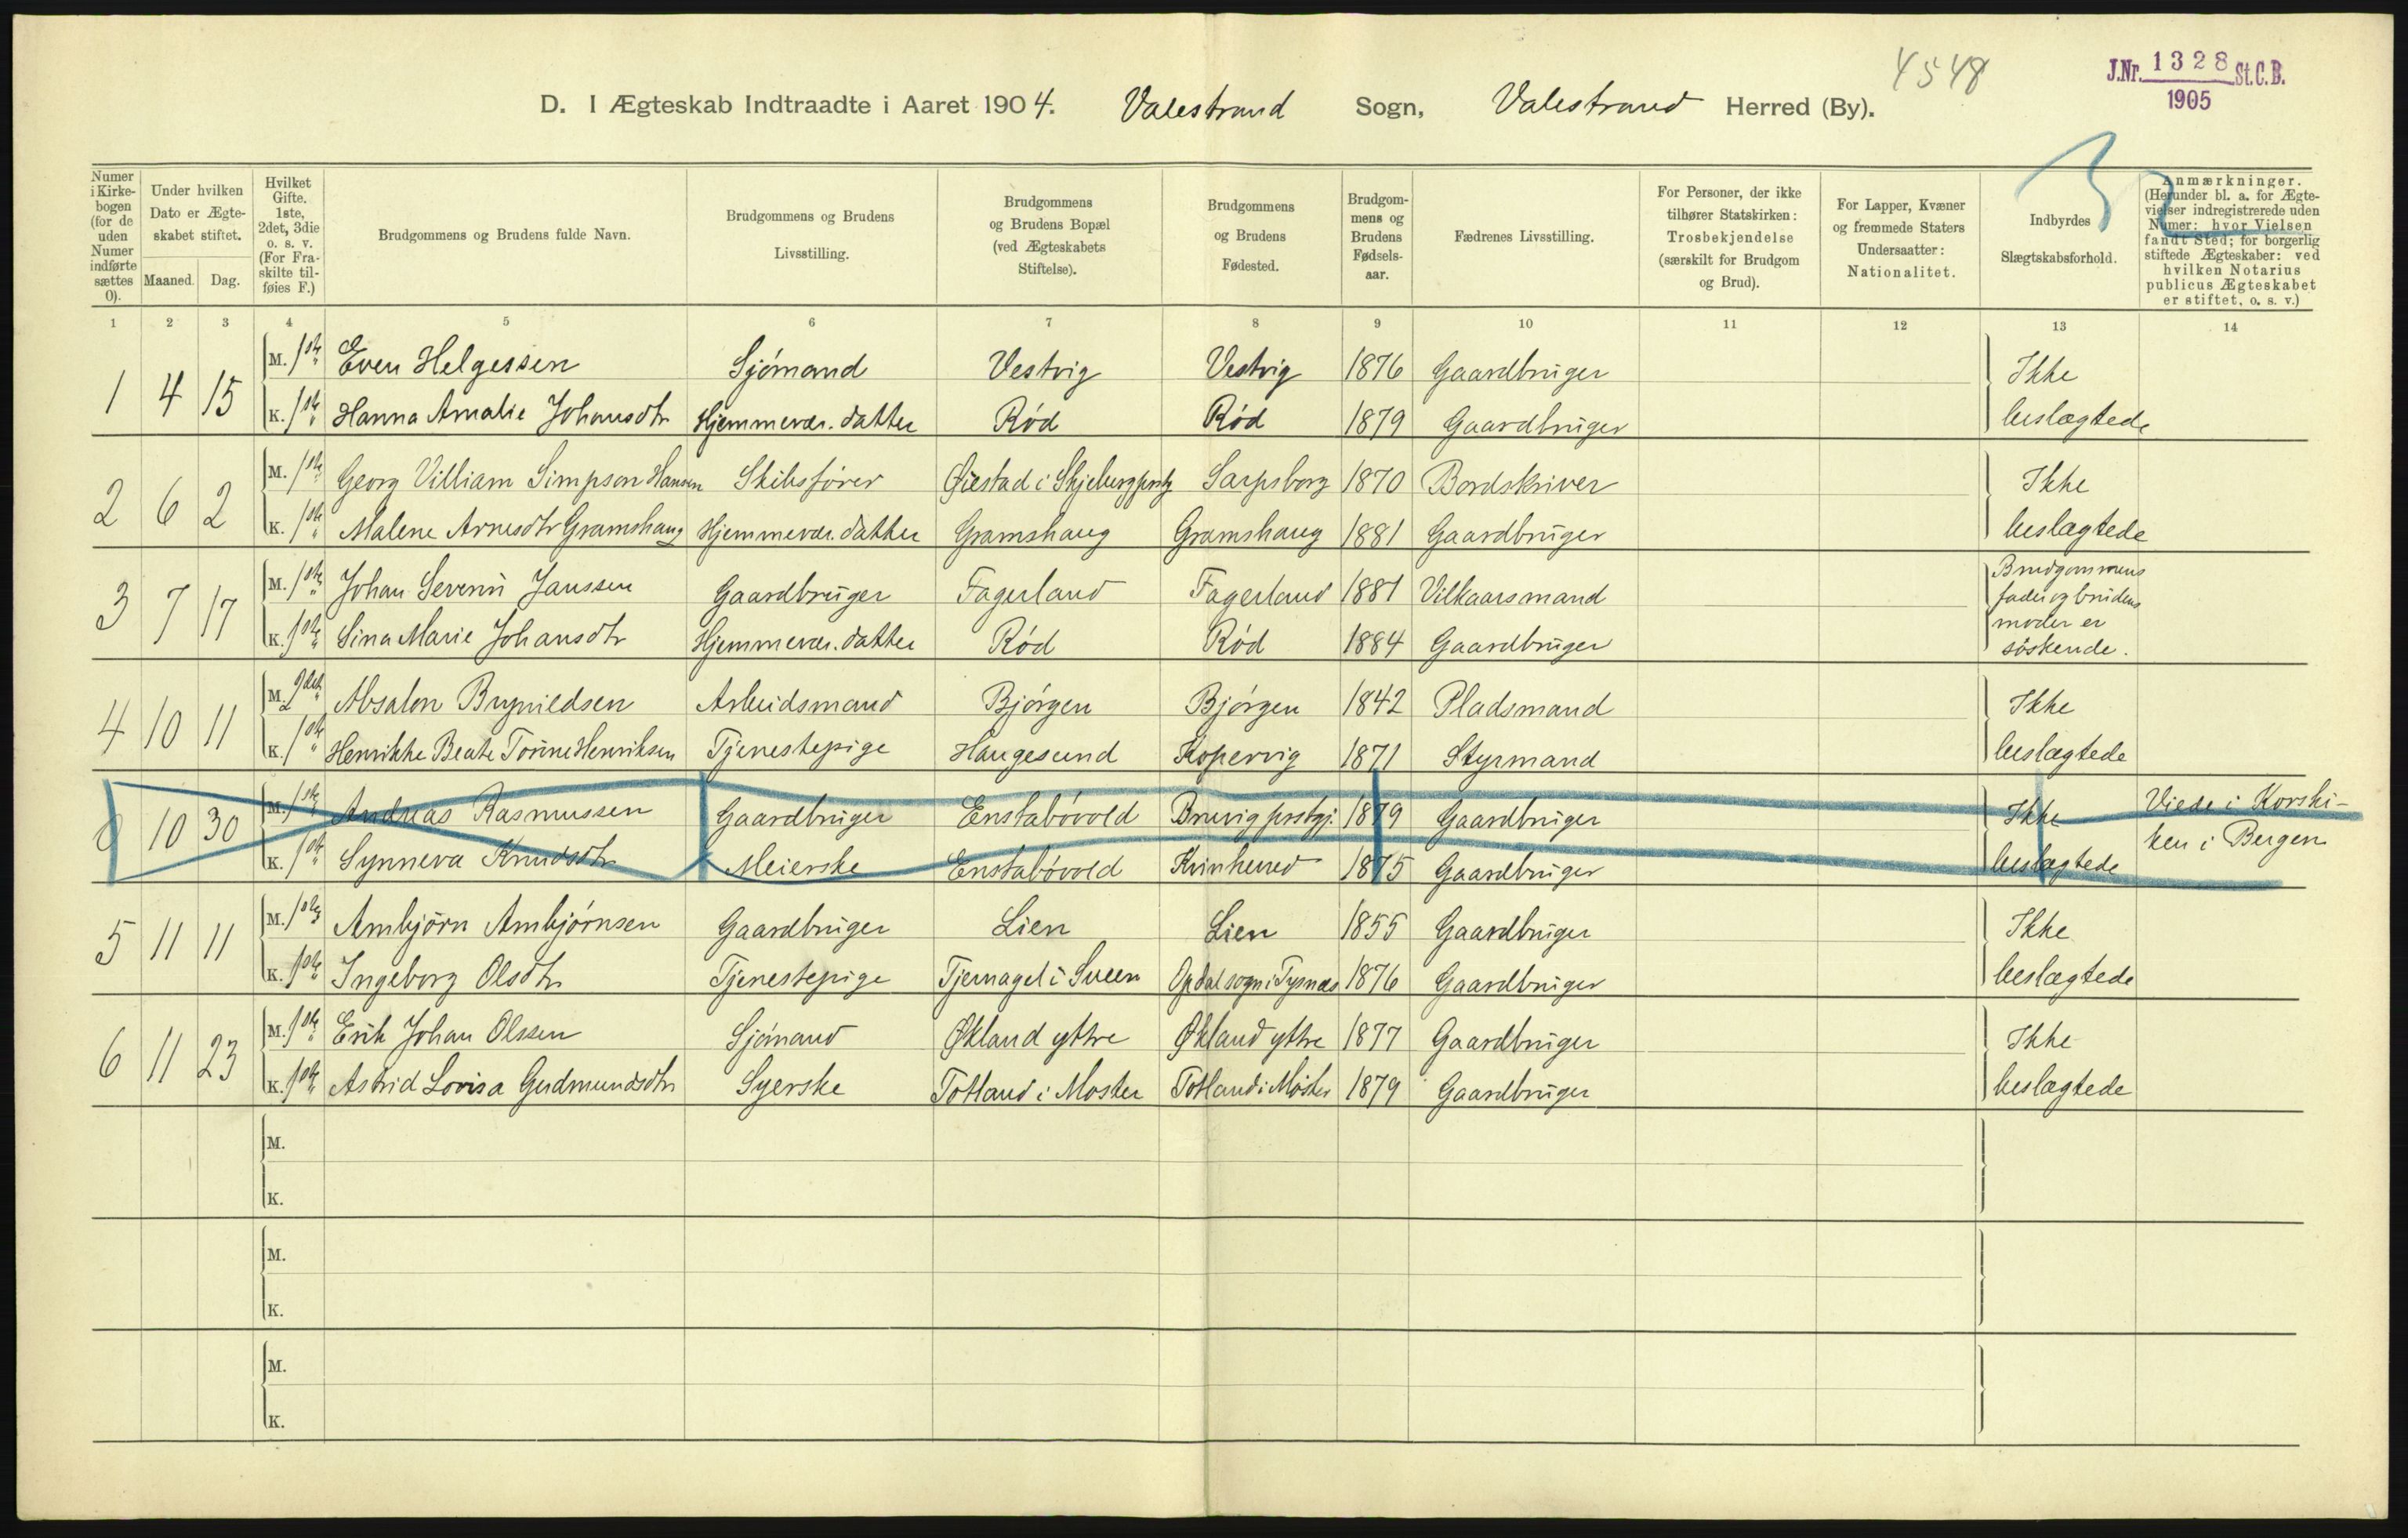 4548
J.Nr. 1328 St.C.B.
1905
D. I Ægteskab Indtraadte i Aaret 1904. Valestrand Sogn, Valestrand Herred (By).
Numer i Kirkebogen (for de uden Numer indførte sættes 0).
Under hvilken Dato er Ægteskabet stiftet.
Maaned. Dag.
Hvilket Gifte. 1ste, 2det, 3die o. s. v. (For Fraskilte tilføies F.)
Brudgommens og Brudens fulde Navn.
Brudgommens og Brudens Livsstilling.
Brudgommens og Brudens Bopæl (ved Ægteskabets Stiftelse).
Brudgommens og Brudens Fødested.
Brudgommens og Brudens Fødselsaar.
Fædrenes Livsstilling.
For Personer, der ikke tilhører Statskirken: Trosbekjendelse (særskilt for Brudgom og Brud).
For Lapper, Kvæner og fremmede Staters Undersaatter: Nationalitet.
Indbyrdes Slægtskabsforhold.
Anmærkninger. (Herunder bl. a. for Ægtevielser indregistrerede uden Numer: hvor Vielsen fandt Sted; for borgerlig stiftede Ægteskaber: ved hvilken Notarius publicus Ægteskabet er stiftet, o. s. v.)
1 2 3 4 5 6 7 8 9 10 11 12 13 14
1 4 15 M. 1ste Even Helgessen Sjømand Vestvig Vestvig 1876 Gaardbruger Ikke
K. 1ste Hanna Amalie Johansdtr Hjemmevær. datter Rød Rød 1879 Gaardbruger beslægtede
2 6 2 M. 1ste Georg Villiam Simpson Hansen Skibsfører Øiestad i Skjeberg prstg Sarpsborg 1870 Bordskriver Ikke
K. 1ste Malene Arnesdtr Gramshaug Hjemmevær. datter Gramshaug Gramshaug 1881 Gaardbruger beslægtede
3 7 17 M. 1ste Johan Severin Janssen Gaardbruger Fagerland Fagerland 1881 Vilkaarsmand Brudgommens fader og brudens
K. 1ste Sina Marie Johansdtr Hjemmevær. datter Rød Rød 1884 Gaardbruger moder er søskende.
4 10 11 M. 2det Absalon Brynildsen Arbeidsmand Bjørgen Bjørgen 1842 Pladsmand Ikke
K. 1ste Henrikke Beate Torine Henriksen Tjenestepige Haugesund Kopervig 1871 Styrmand beslægtede
0 10 30 M. 1ste Andreas Rasmussen Gaardbruger Enstabøvold Bruvig prstgj. 1879 Gaardbruger Ikke Viede i Korskir-
K. 1ste Synneva Knudsdtr Meierske Enstabøvold Kvinherred 1875 Gaardbruger beslægtede ken i Bergen
5 11 11 M. 1ste Ambjørn Ambjørnsen Gaardbruger Lien Lien 1855 Gaardbruger Ikke
K. 1ste Ingeborg Olsdtr Tjenestepige Tjernagel i Sveen Opdal sogn i Tysnæs 1876 Gaardbruger beslægtede
6 11 23 M. 1ste Erik Johan Olssen Sjømand Økland yttre Økland yttre 1877 Gaardbruger Ikke
K. 1ste Astrid Lovisa Gudmundsdtr Syerske Totland i Moster Totland i Moster 1879 Gaardbruger beslægtede
M.
K.
M.
K.
M.
K.